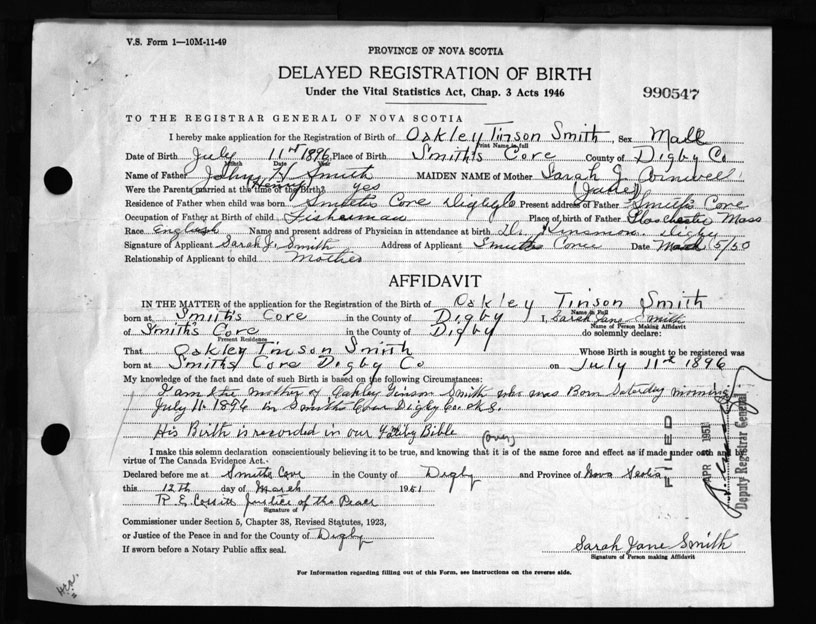 V.S. Form 1—10M-11-49
PROVINCE OF NOVA SCOTIA
DELAYED REGISTRATION OF BIRTH
Under the Vital Statistics Act, Chap. 3 Acts 1946
990547
TO THE REGISTRAR GENERAL OF NOVA SCOTIA
I hereby make application for the Registration of Birth of Oakley Tinson Smith, Sex Male
Print Name in full
Date of Birth July 11th 1896 Place of Birth Smith's Cove County of Digby Co
Month Date Year
Name of Father John H Smith MAIDEN NAME of Mother Sarah J. Cornwell
(Henry) (Jane)
Were the Parents married at the time of the Birth? yes
Residence of Father when child was born Smiths Cove Digby Co Present address of Father Smith's Cove
Occupation of Father at Birth of child Fisherman Place of birth of Father Glochester Mass
Race English Name and present address of Physician in attendance at birth Dr. Kinsman. Digby
Signature of Applicant Sarah J. Smith Address of Applicant Smiths Cove Date March 5/50
Relationship of Applicant to child Mother
AFFIDAVIT
IN THE MATTER of the application for the Registration of the Birth of Oakley Tinson Smith
Name in Full
born at Smith's Cove in the County of Digby I, Sarah Jane Smith
Name of Person Making Affidavit
of Smith's Cove in the County of Digby do solemnly declare:
Present Residence
That Oakley Tinson Smith Whose Birth is sought to be registered was
born at Smiths Cove Digby Co on July 11th 1896
My knowledge of the fact and date of such Birth is based on the following Circumstances:
I am the mother of Oakley Tinson Smith who was Born Saturday morning
July 11. 1896 in Smiths Cove Digby Co. N.S.
His Birth is recorded in our Family Bible (over)
I make this solemn declaration conscientiously believing it to be true, and knowing that it is of the same force and effect as if made under oath and by
virtue of The Canada Evidence Act.
Declared before me at Smiths Cove in the County of Digby and Province of Nova Scotia
this 12th day of March 1951
R. E. Cossitt Justice of the Peace
Signature of
Commissioner under Section 5, Chapter 38, Revised Statutes, 1923,
or Justice of the Peace in and for the County of Digby
If sworn before a Notary Public affix seal.
Sarah Jane Smith
Signature of Person making Affidavit
For Information regarding filling out of this Form, see instructions on the reverse side.
FILED
APR 1951
Deputy Registrar General